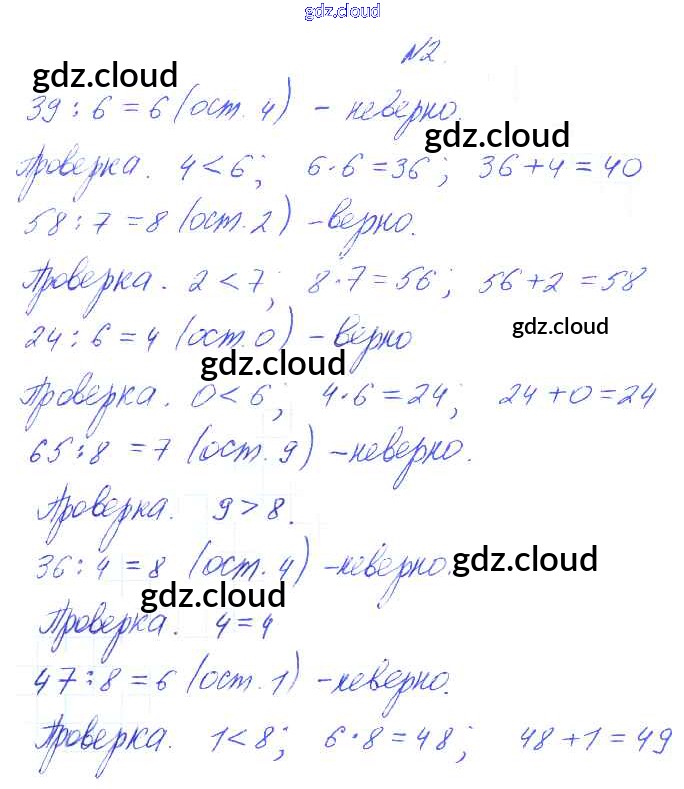 gdz.cloud
№2.
gdz.cloud
39 : 6 = 6 (ост. 4) - неверно.
gdz.cloud
Проверка. 4 < 6; 6 · 6 = 36; 36 + 4 = 40
58 : 7 = 8 (ост. 2) - верно.
Проверка. 2 < 7; 8 · 7 = 56; 56 + 2 = 58
24 : 6 = 4 (ост. 0) - верно
gdz.cloud
gdz.cloud
Проверка. 0 < 6; 4 · 6 = 24; 24 + 0 = 24
65 : 8 = 7 (ост. 9) - неверно.
Проверка. 9 > 8.
36 : 4 = 8 (ост. 4) - неверно.
gdz.cloud
gdz.cloud
Проверка. 4 = 4
47 : 8 = 6 (ост. 1) - неверно.
Проверка. 1 < 8; 6 · 8 = 48; 48 + 1 = 49